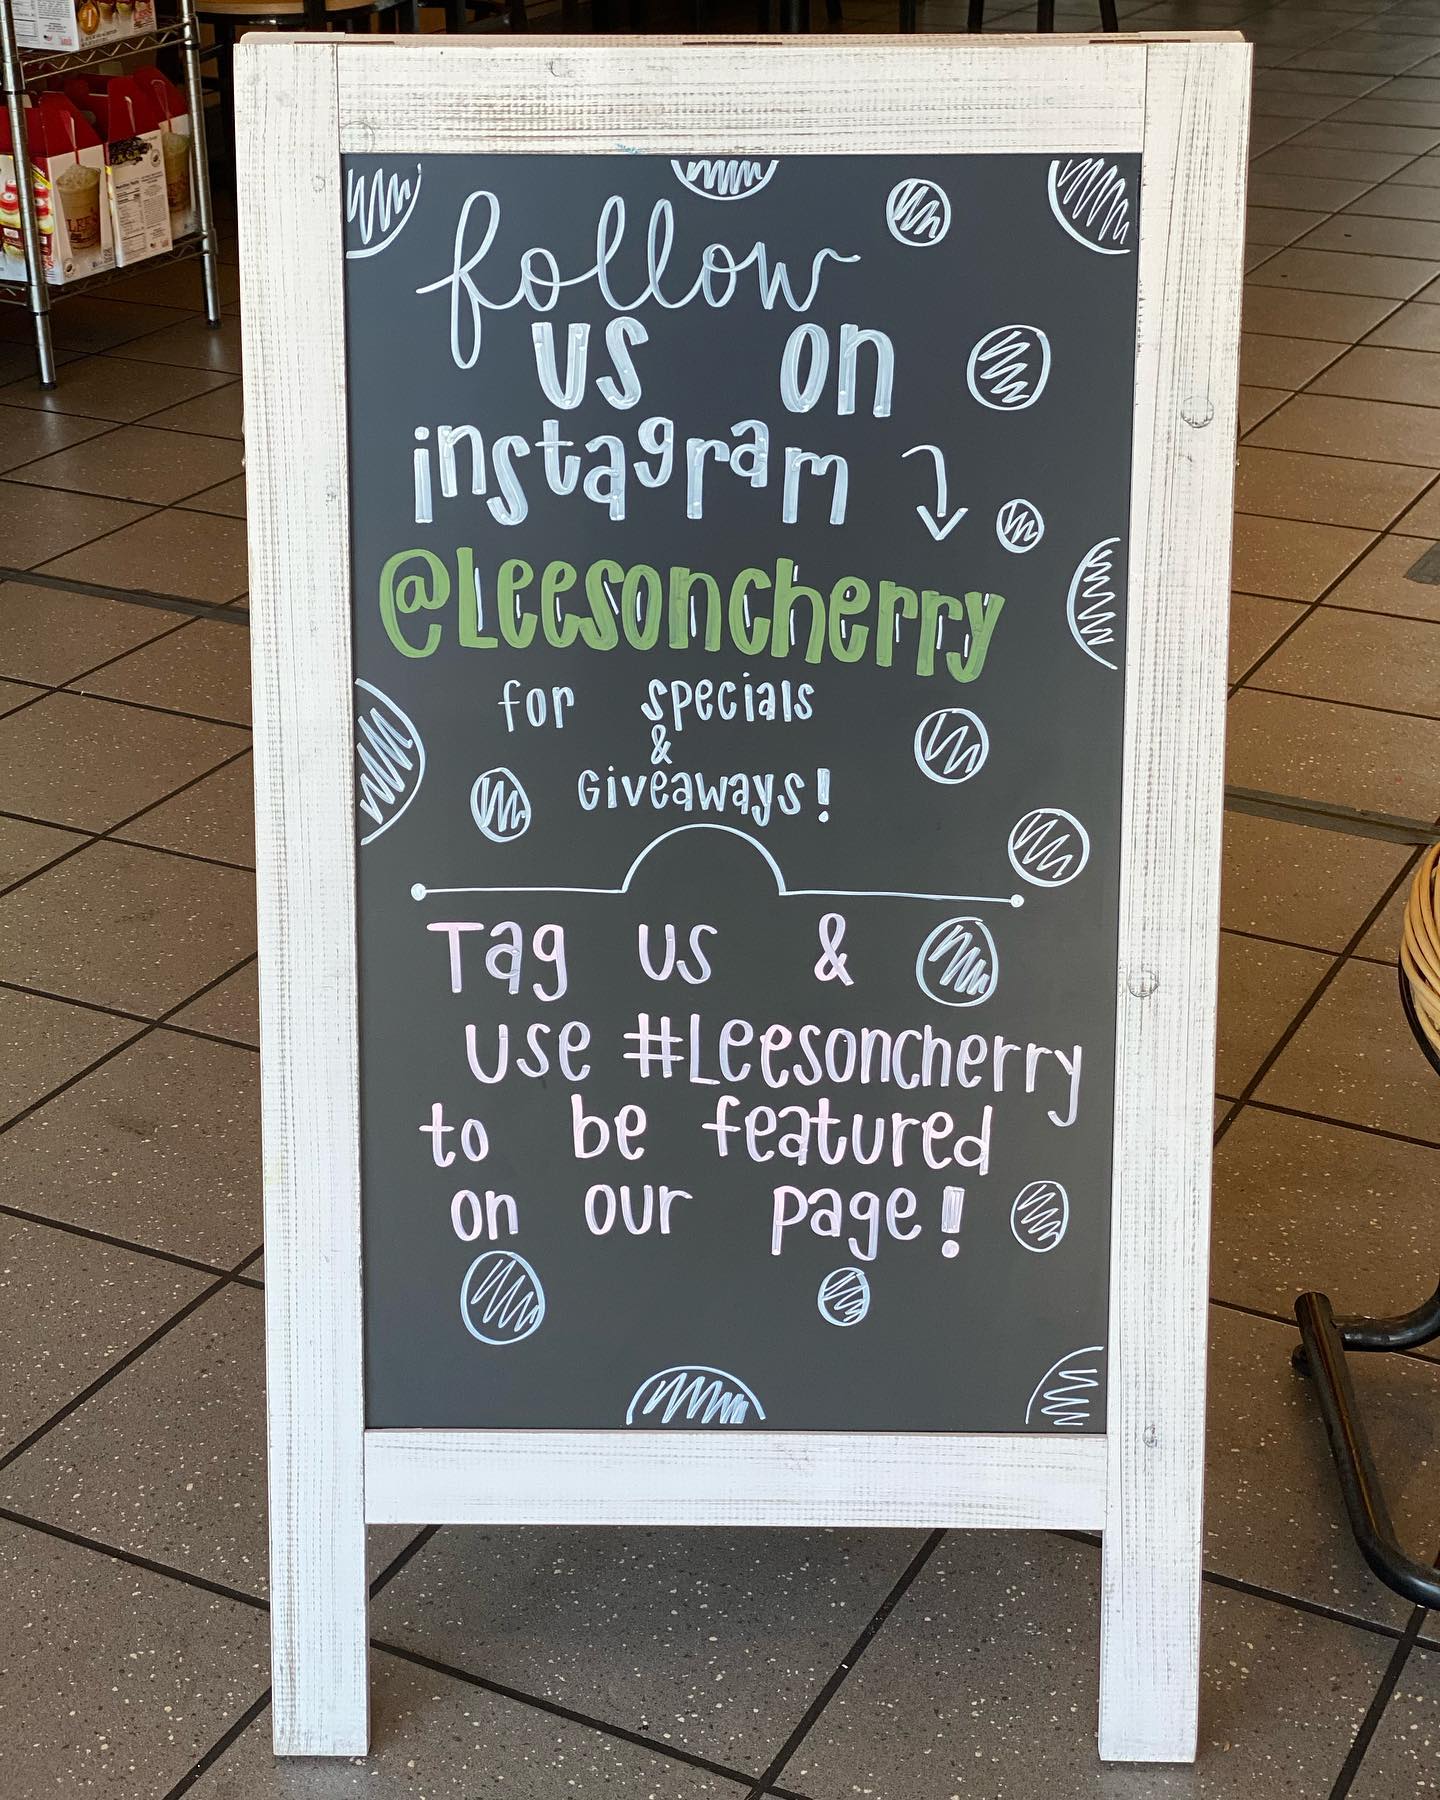 follow
us on
instagram
@Leesoncherry
for specials
&
Giveaways!
Tag us &
use #Leesoncherry
to be featured
on our page!
LEE'S